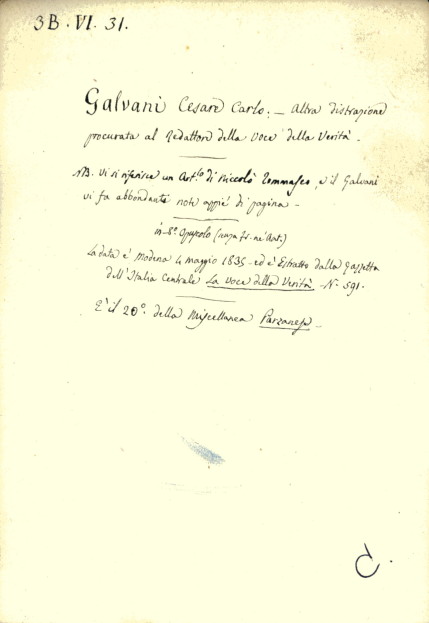 3B. VI. 31.
Galvani Cesare Carlo; - Altra distrazione
procurata al Redattore della Voce della Verità -
NB. Vi si riferisce un Art.lo di Niccolò Tommaseo, e il Galvani
vi fa abbondanti note appié di pagina -
in-8° Opuscolo
La data è Modena 4 maggio 1835 - ed è Estratto dalla Gazzetta
dell'Italia Centrale La Voce della Verità - N. 591.
È il 20° della Miscellanea